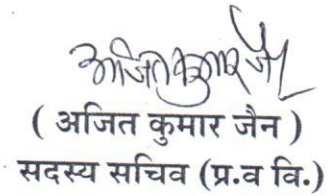 अजित कुमार जैन
( अजित कुमार जैन )
सदस्य सचिव (प्र.व वि.)